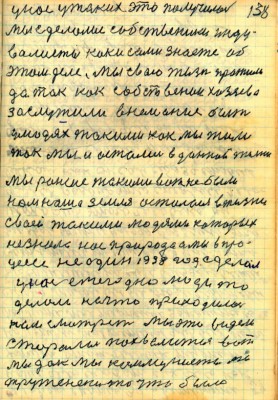 138
у нас у таких это получилось
мы сделались собственники инду
валисты как и сами знаете об
этом деле, мы свою жизнь прожили
да так как собственик хозяева
заслужили внемание быть
людях такими как мы жили
так мы и остались в данной жизни
мы раньше такими вот не были
нам наша земля осталась в жизни
своей такими людями которых
не знала нас природа а мы в про
цесе не один 1938 год сделал
у нас ежегодно люди то
делали на что приходилось
нам смотреть мы это видели
старались похвалится вот
мы дак мы коммунисты мы
труженики то что было